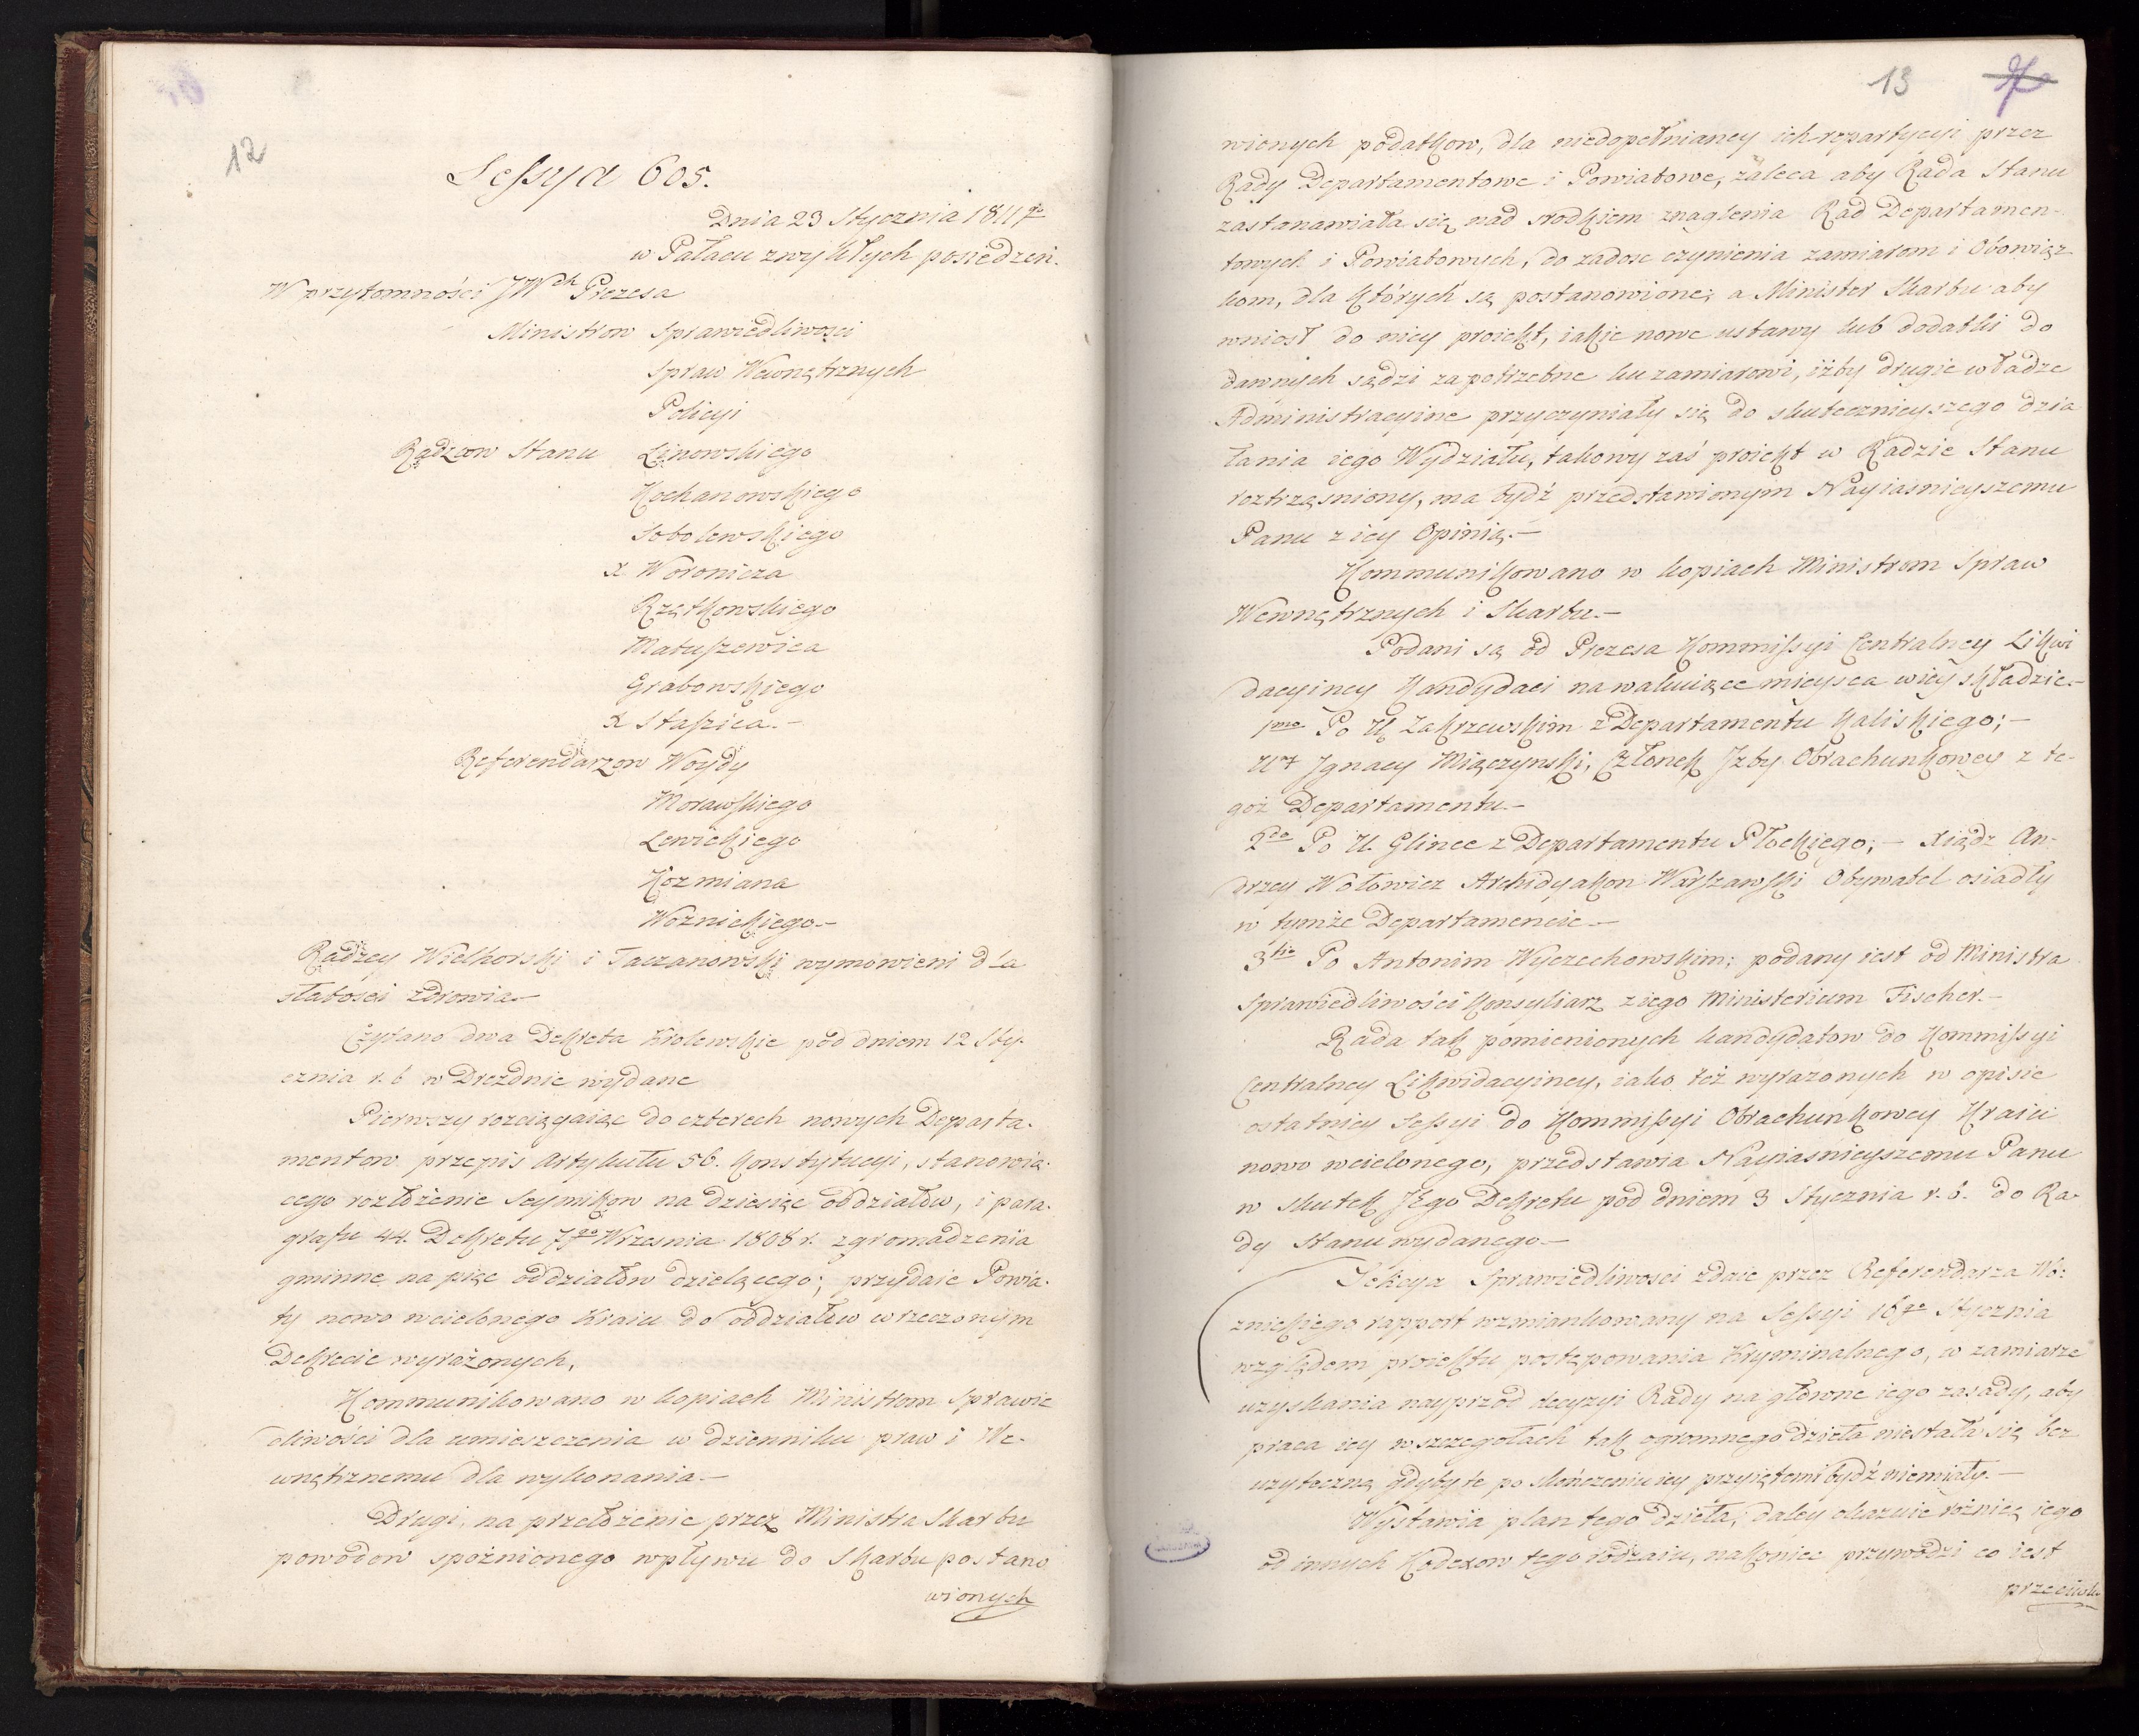 12
Sessya 605.
Dnia 23 Stycznia 1811go
w Pałacu zwykłych posiedzeń.
W przytomności JWch Prezesa
Ministrow Sprawiedliwosci
Spraw Wewnętrznych
Policyi
Radzcow Stanu Linowskiego
Kochanowskiego
Sobolewskiego
X Woronicza
Rzętkowskiego
Matuszewica
Grabowskiego
X Staszica.-
Referendarzow Woydy
Morawskiego
Lewickiego
Kozmiana
Woznickiego.-
Radzcy Wielhorski i Taczanowski wymowieni dla
słabosci zdrowia.-
Czytano dwa Dekreta Krolewskie pod dniem 12 Sty-
cznia r. b w Dreźdnie wydane
Pierwszy rozciągaiąc do czterech nowych Departa-
mentow przepis Artykułu 56. Konstytucyi, stanowią-
cego rozłożenie Seymikow na dziesięc oddziałow, i para-
grafu 44. Dekretu 7go Wrzesnia 1808 r. zgromadzenia
gminne na pięc oddziałow dzielącego; przydaie Powia-
ty nowo wcielonego Kraiu do oddziałow w rzeczonym
Dekrecie wyrażonych,
Kommunikowano w kopiach Ministrom Sprawie
dliwości dla umieszczenia w dzienniku praw i We-
wnętrznemu dla wykonania.-
Drugi, na przełożenie przez Ministra Skarbu
powodow spoznionego wpływu do Skarbu postano
wionych
13
wionych podatkow, dla niedopełnianey ich repartycyi przez
Rady Departamentowe i Powiatowe, zaleca aby Rada Stanu
zastanawiała się nad srodkiem znaglenia Rad Departamen-
towych i Powiatowych, do zadosc czynienia zamiarom i Obowiąz-
kom, dla których są postanowione; a Minister Skarbu aby
wniosł do niey proiekt, iakie nowe ustawy lub dodatki do
dawnych sądzi za potrzebne ku zamiarowi, iżby drugie władze
Administracyine przyczyniały się do skutecznieyszego dzia
łania iego Wydziału, takowy zaś proiekt w Radzie Stanu
roztrząsniony, ma bydź przedstawionym Nayiasnieyszemu
Panu z iey Opinią.-
Kommunikowano w kopiach Ministrom Spraw
Wewnętrznych i Skarbu.-
Podani są od Prezesa Kommissyi Centralney Likwi
dacyiney Kandydaci na wakuiące mieysca w iey składzie.-
1mo Po U. Zakrzewskim z Departamentu Kaliskiego;-
Ur Ignacy Miączynski, Członek Izby Obrachunkowey z te-
goż Departamentu.-
2do Po U. Glince z Departamentu Płockiego;- Xiądz An-
drzey Wołowicz Archidyakon Warszawski Obywatel osiadły
w tymże Departamencie.-
3tio Po Antonim Wyczechowskim; podany iest od Ministra
Sprawiedliwości Konsyliarz z iego Ministerium Fischer.-
Rada tak pomienionych kandydatow do Kommissyi
Centralney Likwidacyiney, iako też wyrazonych w opisie
ostatniey Sessyi do Kommissyi Obrachunkowey Kraiu
nowo wcielonego, przedstawia Nayiasnieyszemu Panu
w skutek Jego Dekretu pod dniem 3 Stycznia r. b. do Ra-
dy Stanu wydanego.-
Sekcya Sprawiedliwosci zdaie przez Referendarza Wo-
znickiego rapport wzmiankowany na Sessyi 16go Stycznia
względem proiektu postępowania Kryminalnego, w zamiarze
uzyskania nayprzod decyzyi Rady na głowne iego zasady, aby
praca iey w szczegołach tak ogromnego dzieła niestała się bez
uzyteczną gdyby te po skończeniu iey przyiętemi bydź niemiały.-
Wystawia plan tego dzieła; daley okazuie rożnicę iego
od innych Kodexow tego rodzaiu, nakoniec przywodzi co iest